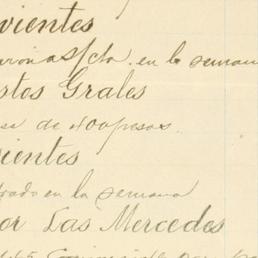 vientes
aron a S/cta. en la seman
stos Grales
sa de 400 pesos.
ientes
trado en la semana
or Las Mercedes